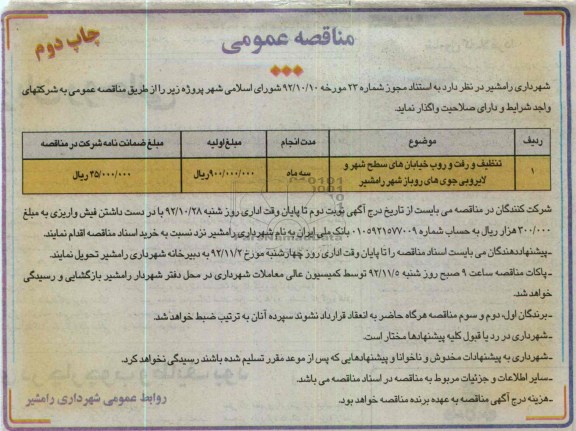 مناقصه عمومی
چاپ دوم
شهرداری رامشیر در نظر دارد به استناد مجوز شماره ۲۳ مورخه ۹۲/۱۰/۱۰ شورای اسلامی شهر پروژه زیر را از طریق مناقصه عمومی به شرکتهای
واجد شرایط و دارای صلاحیت واگذار نماید.
ردیف موضوع مدت انجام مبلغ اولیه مبلغ ضمانت نامه شرکت در مناقصه
۱ تنظیف و رفت و روب خیابان های سطح شهر و لایروبی جوی های روباز شهر رامشیر سه ماه ۹۰۰/۰۰۰/۰۰۰ریال ۴۵/۰۰۰/۰۰۰ ریال
شرکت کنندگان در مناقصه می بایست از تاریخ درج آگهی نوبت دوم تا پایان وقت اداری روز شنبه ۹۲/۱۰/۲۸ با در دست داشتن فیش واریزی به مبلغ
۳۰۰/۰۰۰ هزار ریال به حساب شماره ۰۱۰۵۹۲۱۵۷۷۰۰۹ بانک ملی ایران به نام شهرداری رامشیر نزد نسبت به خرید اسناد مناقصه اقدام نمایند.
-پیشنهاددهندگان می بایست اسناد مناقصه را تا پایان وقت اداری روز چهارشنبه مورخ ۹۲/۱۱/۲ به دبیرخانه شهرداری رامشیر تحویل نمایند.
-پاکات مناقصه ساعت ۹ صبح روز شنبه ۹۲/۱۱/۵ توسط کمیسیون عالی معاملات شهرداری در محل دفتر شهردار رامشیر بازگشایی و رسیدگی
خواهد شد.
-برندگان اول، دوم و سوم مناقصه هرگاه حاضر به انعقاد قرارداد نشوند سپرده آنان به ترتیب ضبط خواهد شد.
-شهرداری در رد یا قبول کلیه پیشنهادها مختار است.
-شهرداری به پیشنهادات مخدوش و ناخوانا و پیشنهادهایی که پس از موعد مقرر تسلیم شده باشند رسیدگی نخواهد کرد.
-سایر اطلاعات و جزئیات مربوط به مناقصه در اسناد مناقصه می باشد.
-هزینه درج آگهی مناقصه به عهده برنده مناقصه خواهد بود.
روابط عمومی شهرداری رامشیر